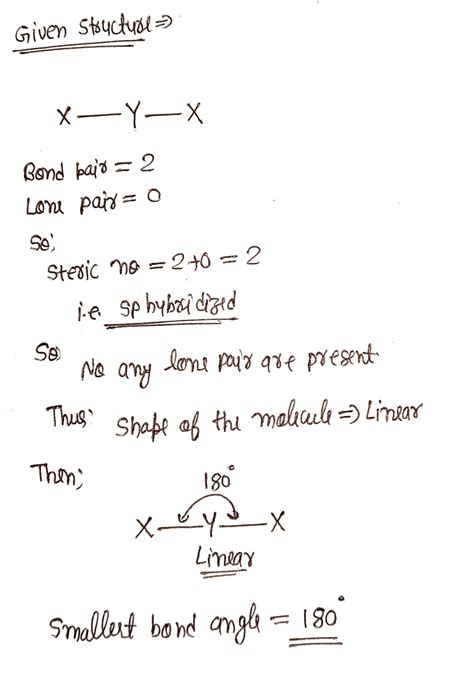 Given Structure ⇒
X — Y — X
Bond pair = 2
Lone pair = 0
So;
Steric no = 2+0 = 2
i.e sp hybridized
So No any lone pair are present
Thus: Shape of the molecule ⇒ Linear
Then;
180°
X — Y — X
Linear
Smallest bond angle = 180°